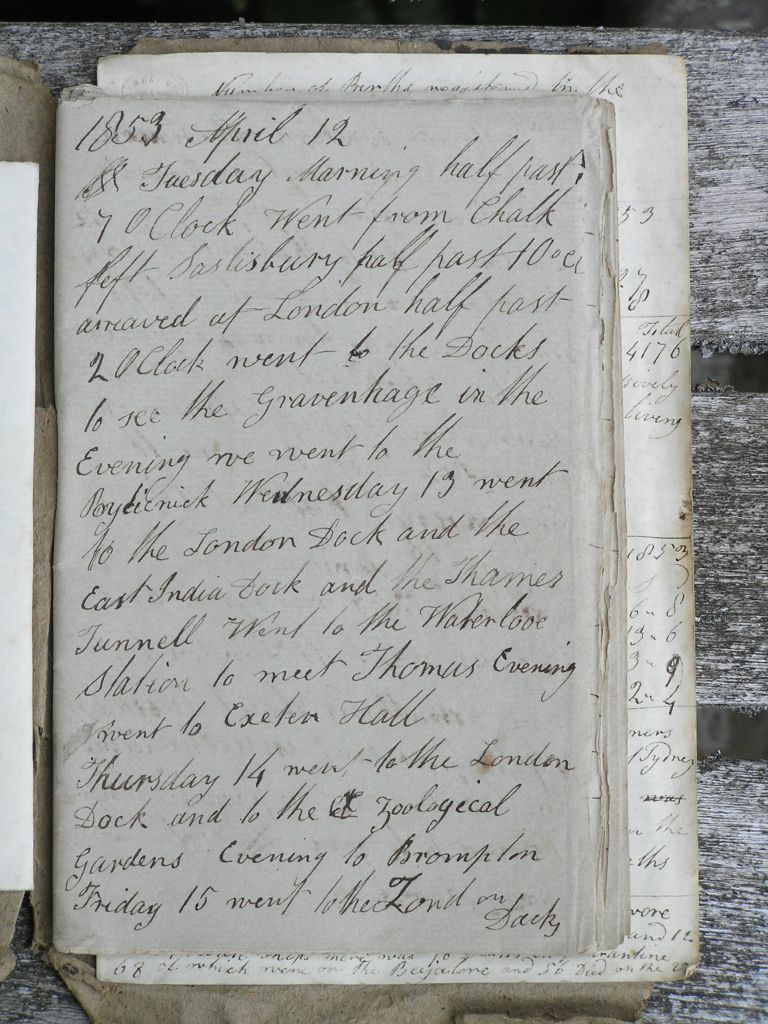 Number of Births registered in the
1853 April 12
Tuesday Marning half past
7 OClock Went from Chalk
left Saslisbury half past 10 oCl
arreaved at London half past
2 OClock went to the Docks
to see the Gravenhage in the
Evening we went to the
Wednesday 13 went
to the London Dock and the
East India Dock and the Thames
Tunnell Went to the Waterlooe
Station to meet Thomas Evening
went to Exeter Hall
Thursday 14 went to the London
Dock and to the Zoological
Gardens Evening to Brompton
Friday 15 went to the Lond on
Docks
53
Total
4176
sively
living
1853
6 " 8
13 " 6
3 " 9
2 " 4
ners
Sydney
was
n the
ths
wore
and 12
68 of which were on the Beejalore and 56 Died on the